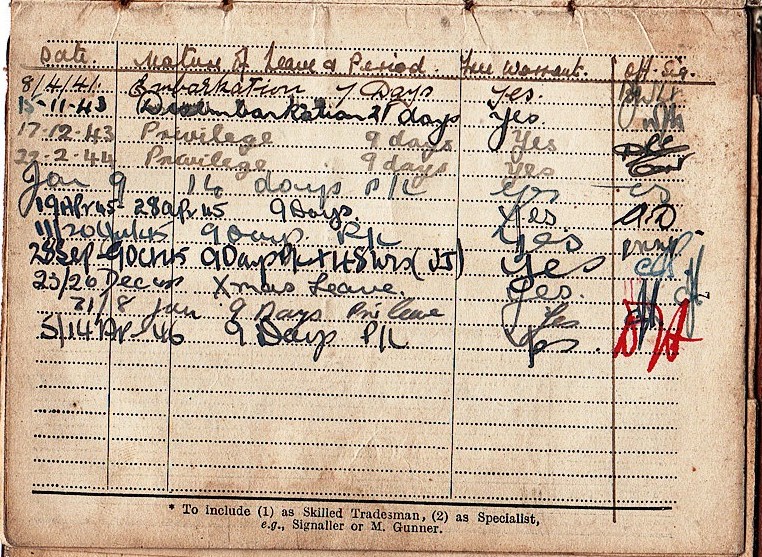 Date. Nature of Leave & Period. Free Warrant. Off. Sig.
8/4/41 Embarkation 7 Days Yes.
15-11-43 Disembarkation 21 days Yes
17-12-43 Privilege 9 days Yes
22-2-44 Privilege 9 days Yes
Jan 9 16 days P/L Yes
19 Apr 45 - 28 Apr 45 9 Days. Yes A.D
11/20 July 45 9 Days P/L Yes
28 Sep - 9 Oct 45 9 Days P/L + 48 Hrs (VJ) Yes
23/26 Dec 45 Xmas Leave. Yes.
Jan 9 Days Priv Leave Yes
5/14 Ap 46 9 Days P/L Yes.
* To include (1) as Skilled Tradesman, (2) as Specialist,
e.g., Signaller or M. Gunner.